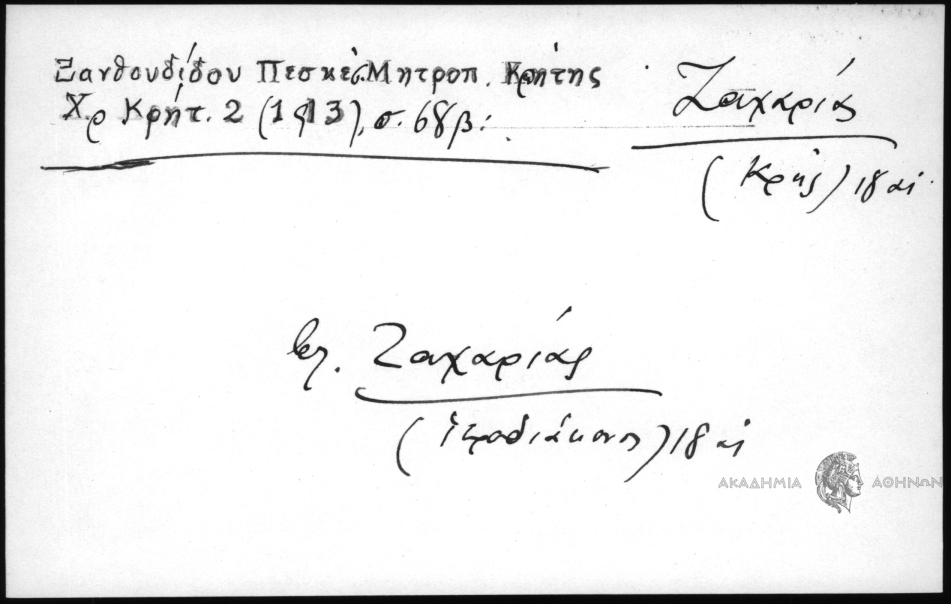 Ξανθουδίδου Πεσκές Μητροπ. Κρήτης
Χρ Κρήτ. 2 (1913), σ. 68β:
Ζαχαρίας
(Κρής) 18 αἰ.
βλ. Ζαχαρίας
(ἱεροδιάκονος) 18 αἰ
ΑΚΑΔΗΜΙΑ ΑΘΗΝΩΝ